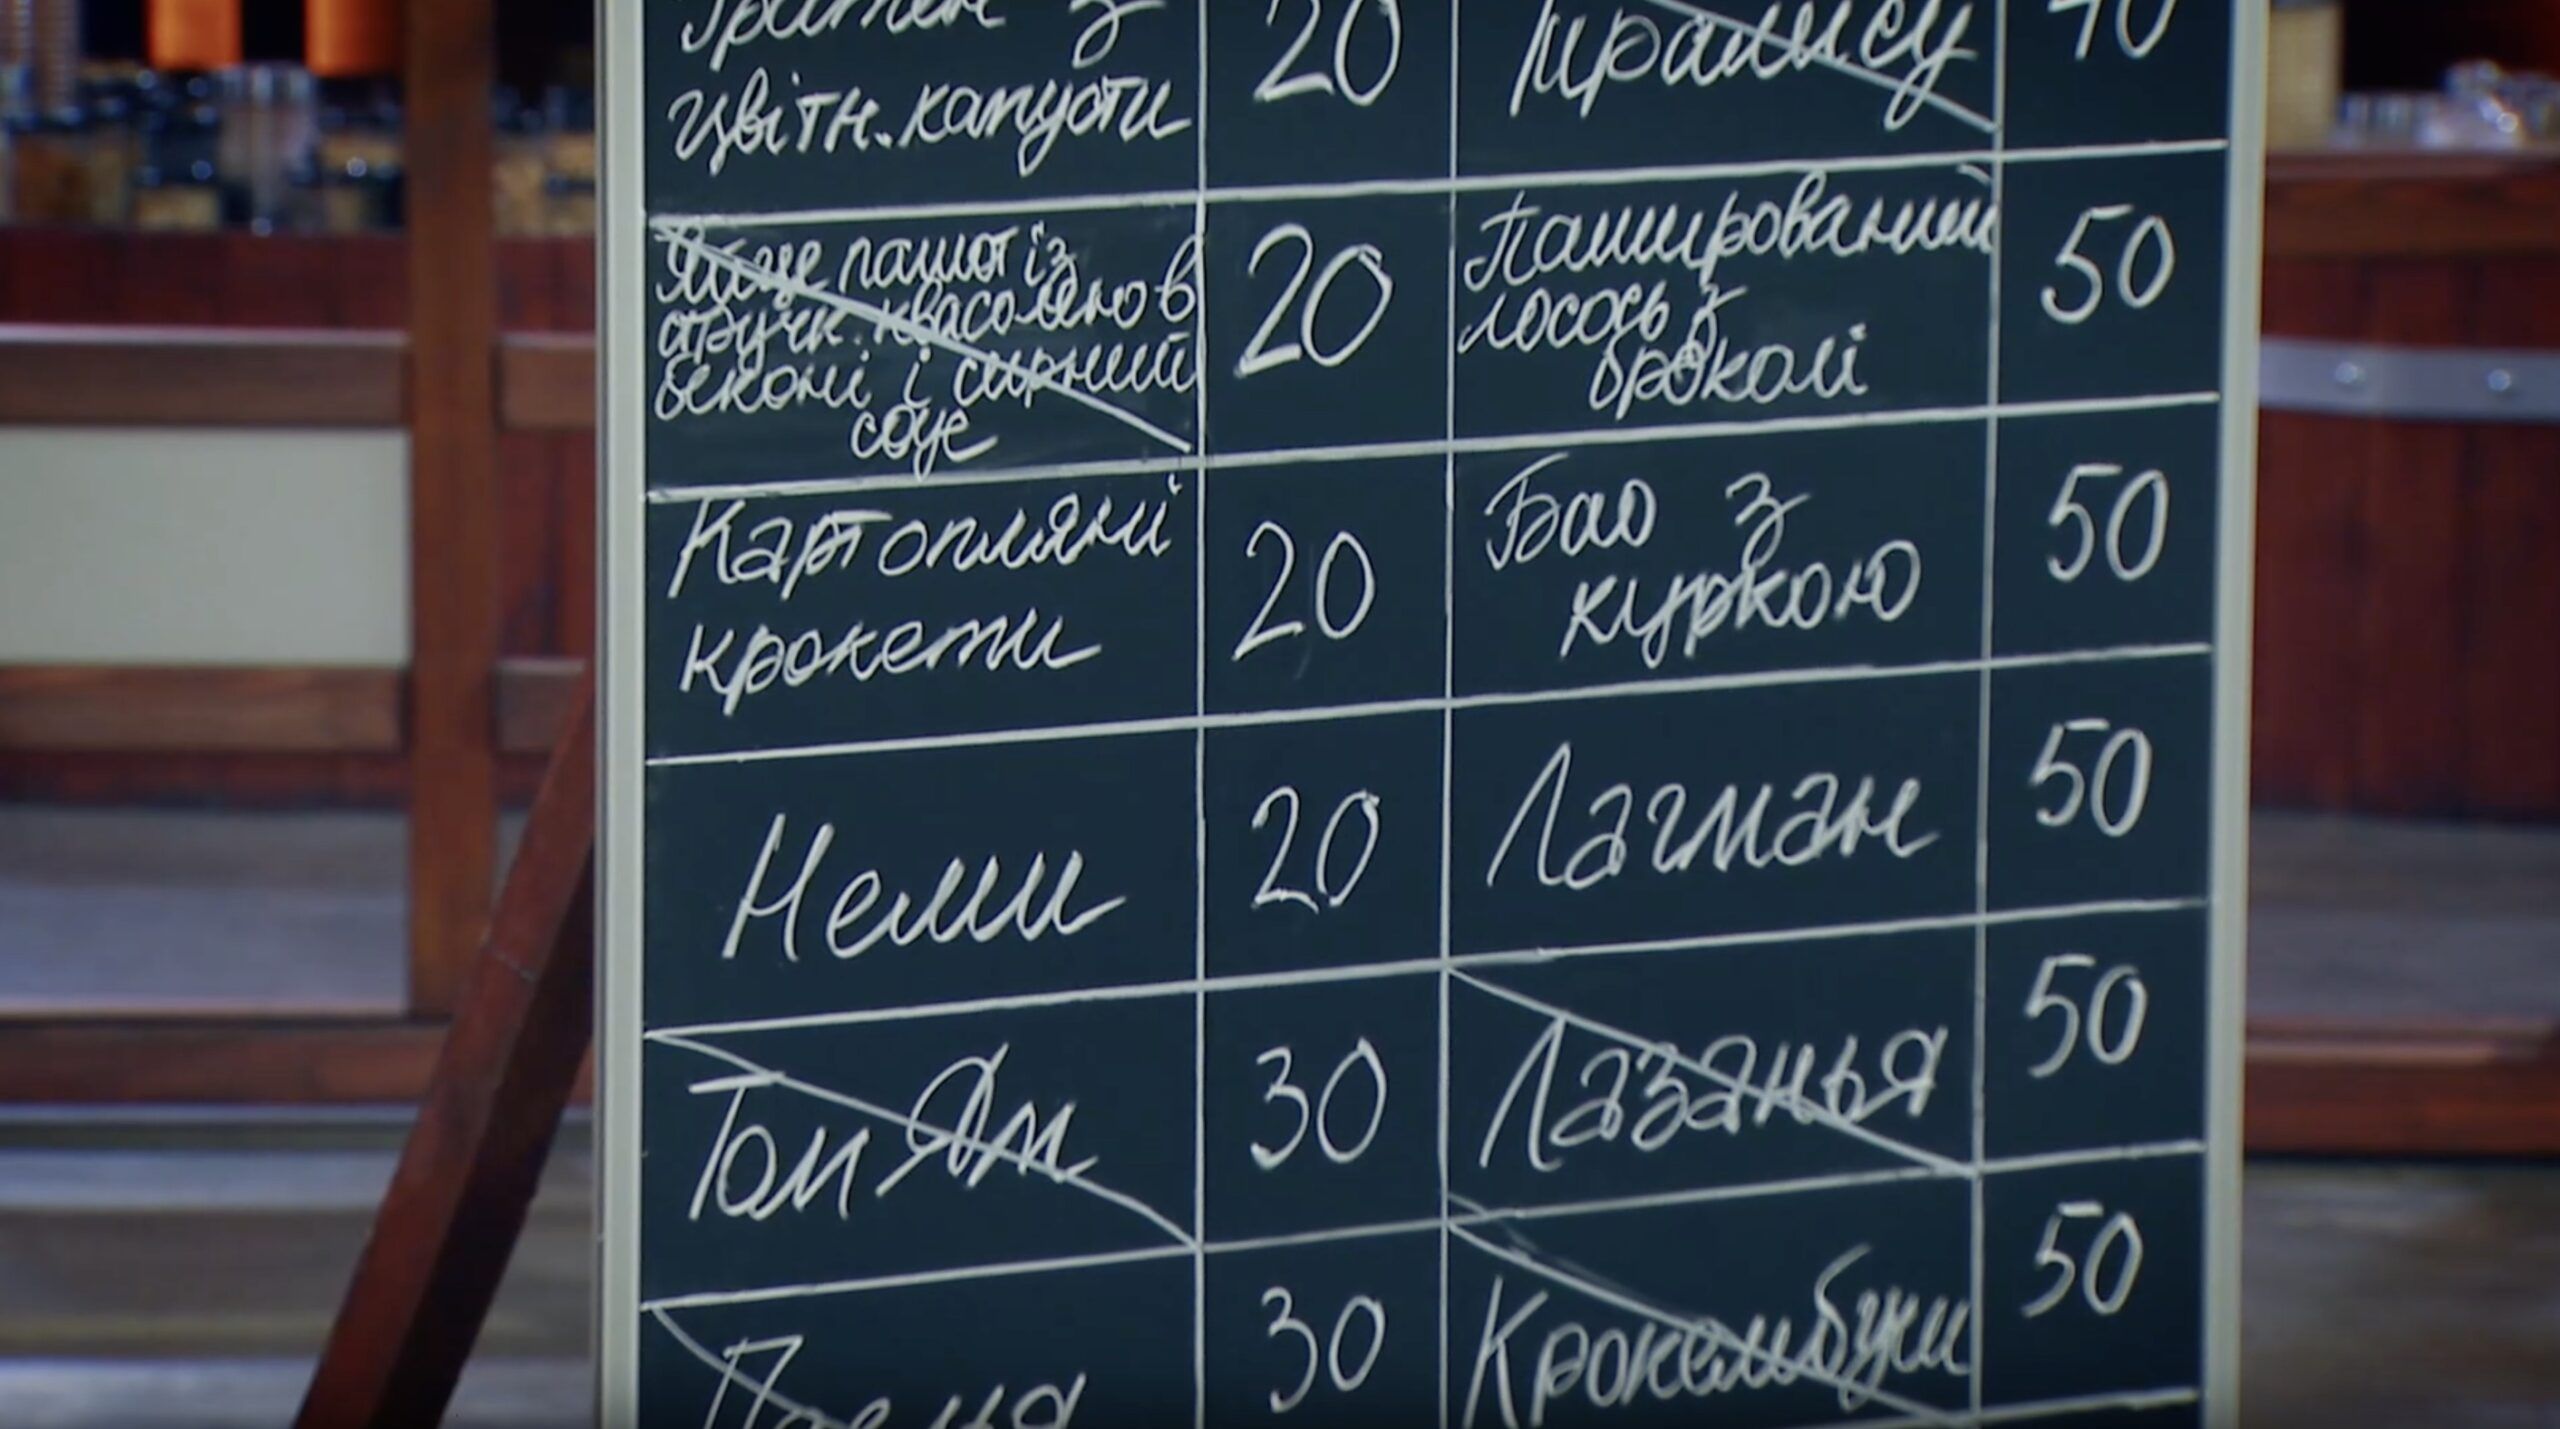 Гратен з
цвітн. капусти
20
Тірамісу
40
Яйце пашот із
стручк. квасолею в
беконі і сирний
соус
20
Паширований
лосось з
броколі
50
Картопляні
крокети
20
Бао з
куркою
50
Неми
20
Лагман
50
Том Ям
30
Лазанья
50
Паелья
30
Крокембуш
50